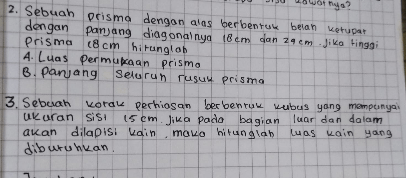 2. Sebuah prisma dengan alas berbentuk belah ketupat
dengan panjang diagonalnya 18 cm dan 24 cm. Jika tinggi
Prisma 18 cm hitunglah
A. Luas permukaan prisma
B. Panjang seluruh rusuk prisma
3. Sebuah kotak perhiasan berbentuk kubus yang mempunyai
ukuran sisi 15 cm. Jika pada bagian luar dan dalam
akan dilapisi kain, maka hitunglah luas kain yang
dibutuhkan.